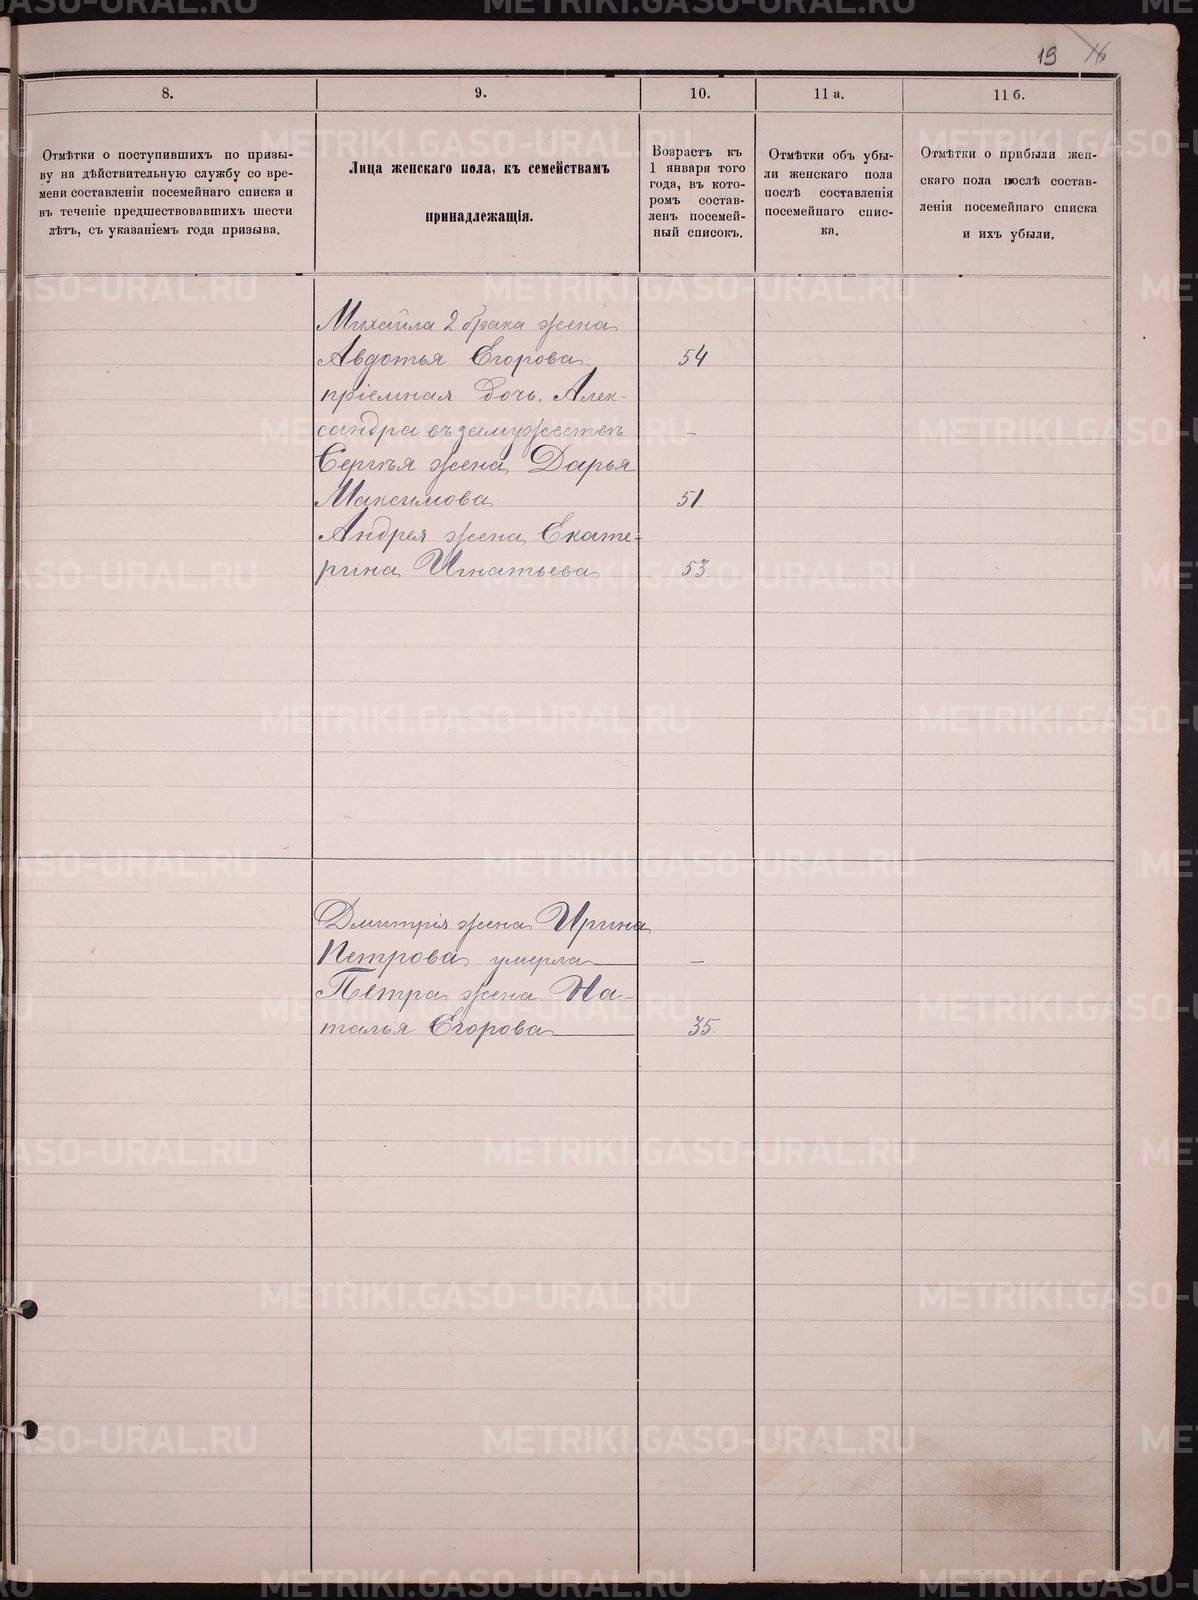 19 16
8.
9.
10.
11 а.
11 б.
Отмѣтки о поступившихъ по призы-
ву на дѣйствительную службу со вре-
мени составленія посемейнаго списка и
въ теченіе предшествовавшихъ шести
лѣтъ, съ указаніемъ года призыва.
Лица женскаго пола, къ семействамъ
принадлежащія.
Возрастъ къ
1 января того
года, въ кото-
ромъ состав-
ленъ посемей-
ный списокъ.
Отмѣтки объ убы-
ли женскаго пола
послѣ составленія
посемейнаго спис-
ка.
Отмѣтки о прибыли жен-
скаго пола послѣ состав-
ленія посемейнаго списка
и ихъ убыли.
Михайла 2 брака жена
Авдотья Егорова 54
пріемная дочь Алек-
сандра въ замужествѣ –
Сергѣя жена Дарья
Максимова 51.
Андрея жена Екате-
рина Игнатьева 53.
Дмитрія жена Ирина
Петрова умерла –
Петра жена На-
талья Егорова 35.
METRIKI.GASO-URAL.RU